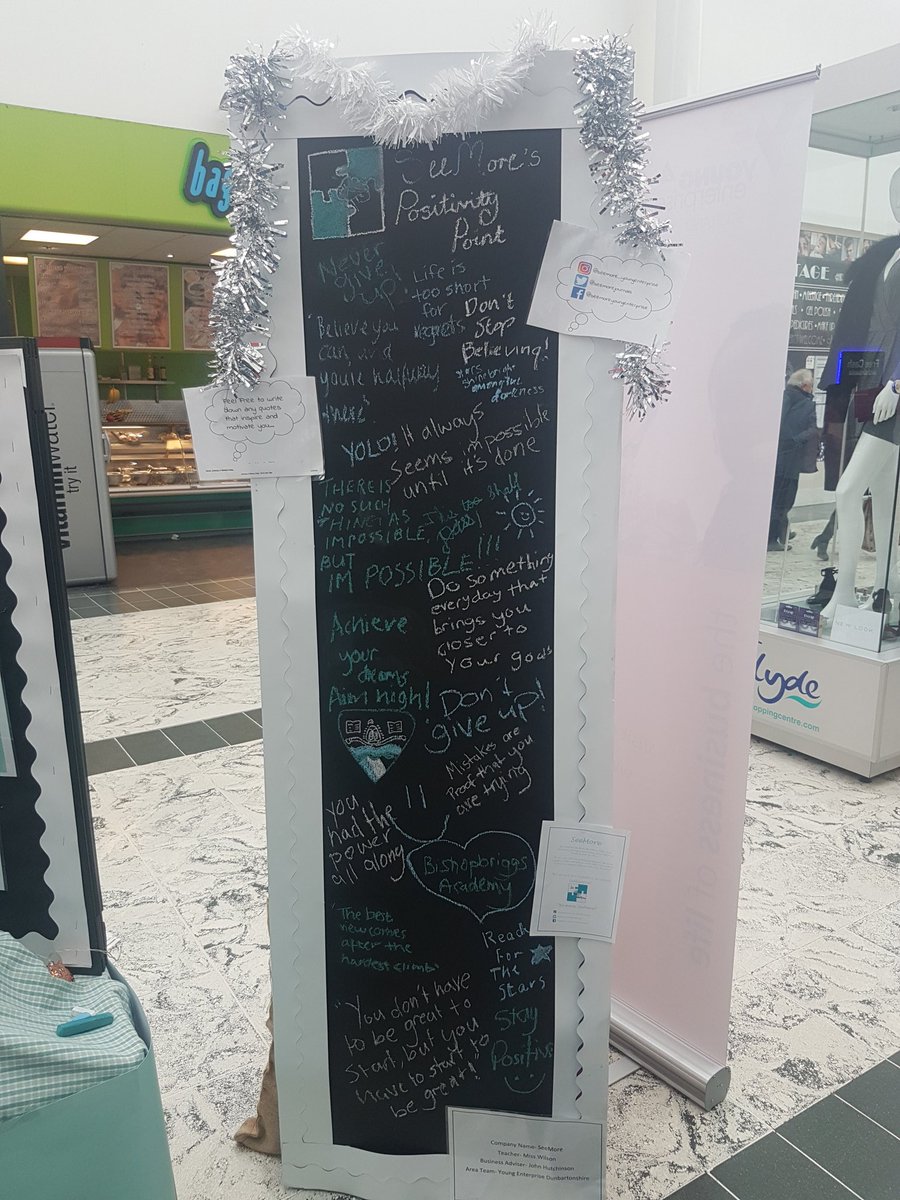 SeeMore's
Positivity
Point
Never
give
up!
Life is
too short
for
regrets
Don't
Stop
Believing!
"Believe you
can and
you're halfway
there"
stars
shine bright
among the
darkness
YOLO!
It always
Seems impossible
until it's done
THERE IS
NO SUCH
THING AS
IMPOSSIBLE,
BUT
IM POSSIBLE!!!
This too shall
pass!
Do something
everyday that
brings you
closer to
your goals
Achieve
your
dreams
Aim high!
"Don't
give up!"
Mistakes are
Proof that you
are trying
You
had the
power
all along
Bishopbriggs
Academy
"The best
view comes
after the
hardest climb"
Reach
For
The
Stars
Stay
Positive
"You don't have
to be great to
Start, but you
have to start to
be great!"
Feel Free to write
down any quotes
that inspire and
motivate you...
@seemore_youngenterprise
@seemoreyoungenterprise
SeeMore
Company Name- SeeMore
Teacher- Miss Wilson
Business Adviser- John Hutchinson
Area Team- Young Enterprise Dunbartonshire
vitaminwater
try it
Clyde
shoppingcentre.com
NEW LOOK